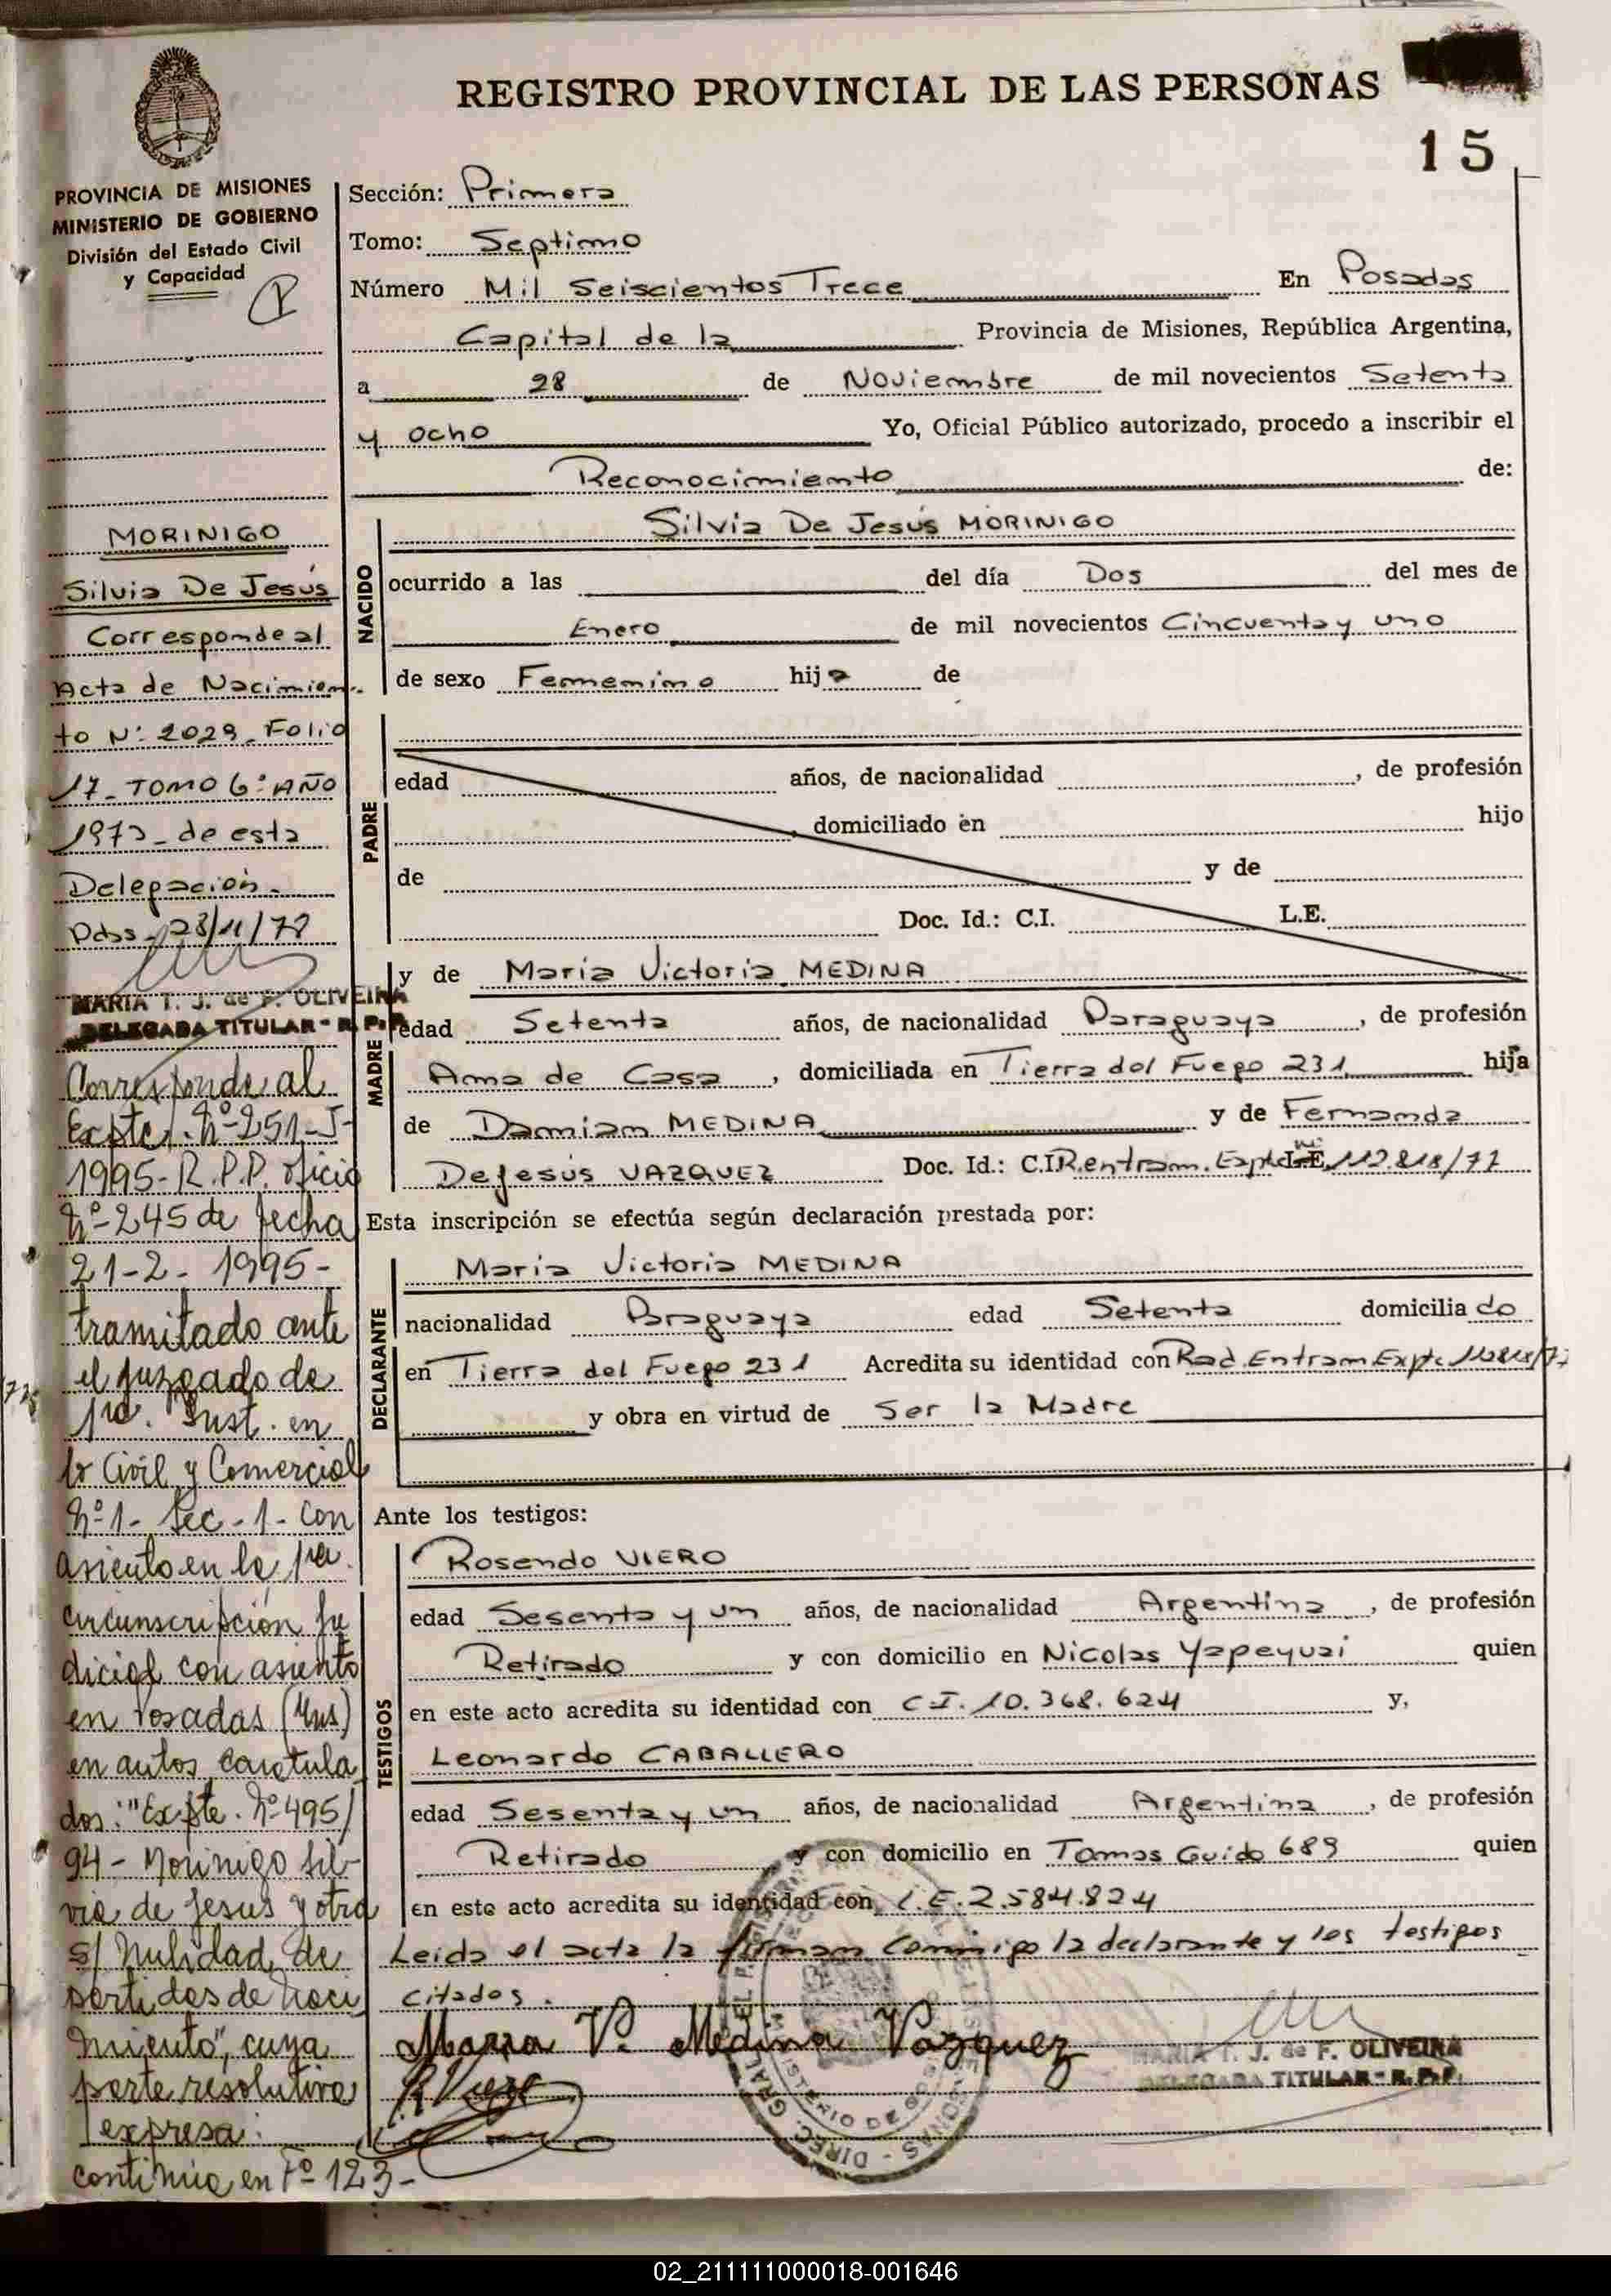 REGISTRO PROVINCIAL DE LAS PERSONAS
15
PROVINCIA DE MISIONES
MINISTERIO DE GOBIERNO
División del Estado Civil
y Capacidad
Sección: Primera
Tomo: Septimo
Número Mil Seiscientos Trece En Posadas
Capital de la Provincia de Misiones, República Argentina,
a 28 de Noviembre de mil novecientos Setenta
y ocho Yo, Oficial Público autorizado, procedo a inscribir el
Reconocimiento de:
NACIDO
Silvia De Jesús MORINIGO
ocurrido a las del día Dos del mes de
Enero de mil novecientos Cincuenta y uno
de sexo Femenino hija de
PADRE
edad años, de nacionalidad , de profesión
domiciliado en hijo
de y de
Doc. Id.: C.I. L.E.
MADRE
y de Maria Victoria MEDINA
edad Setenta años, de nacionalidad Paraguaya , de profesión
Ama de Casa , domiciliada en Tierra del Fuego 231 hija
de Damian MEDINA y de Fernanda
De Jesús VAZQUEZ Doc. Id.: C.I. R.entram. Expte L.E. 112.818/77
Esta inscripción se efectúa según declaración prestada por:
DECLARANTE
Maria Victoria MEDINA
nacionalidad Paraguaya edad Setenta domiciliado
en Tierra del Fuego 231 Acredita su identidad con Rad. Entram Expte 112818/77
y obra en virtud de Ser la Madre
Ante los testigos:
TESTIGOS
Rosendo VIERO
edad Sesenta y un años, de nacionalidad Argentina , de profesión
Retirado y con domicilio en Nicolas Yapeyuai quien
en este acto acredita su identidad con C.I. 10.368.624 y,
Leonardo CABALLERO
edad Sesenta y un años, de nacionalidad Argentina , de profesión
Retirado y con domicilio en Tomas Guido 689 quien
en este acto acredita su identidad con L.E. 2.584.824
Leida el acta la firman conmigo la declarante y los testigos
citados.
Maria V. Medina Vazquez
MARIA T. J. de F. OLIVEIRA
DELEGADA TITULAR - R.P.P.
MORINIGO
Silvia De Jesús
Corresponde al
Acta de Nacimien
to Nº 2029 - Folio
17 - TOMO 6º AÑO
1973 - de esta
Delegación.
Pdas - 28/11/78
MARIA T. J. de F. OLIVEIRA
DELEGADA TITULAR - R.P.P.
Corresponde al
Expte. Nº 251-J-
1995- R.P.P. oficio
Nº 245 de fecha
21-2-1995-
tramitado ante
el juzgado de
1ra. Inst. en
lo Civil y Comercial
Nº 1- Sec-1- con
asiento en la 1ra.
circunscripción ju
dicial con asiento
en Posadas (Mns)
en autos caratula
dos: "Expte. Nº 495/
94- Morinigo Sil-
via de Jesus y otra
s/ Nulidad de
partidas de naci
miento", cuya
parte resolutiva
expresa:
continúa en Fº 123-
02_211111000018-001646